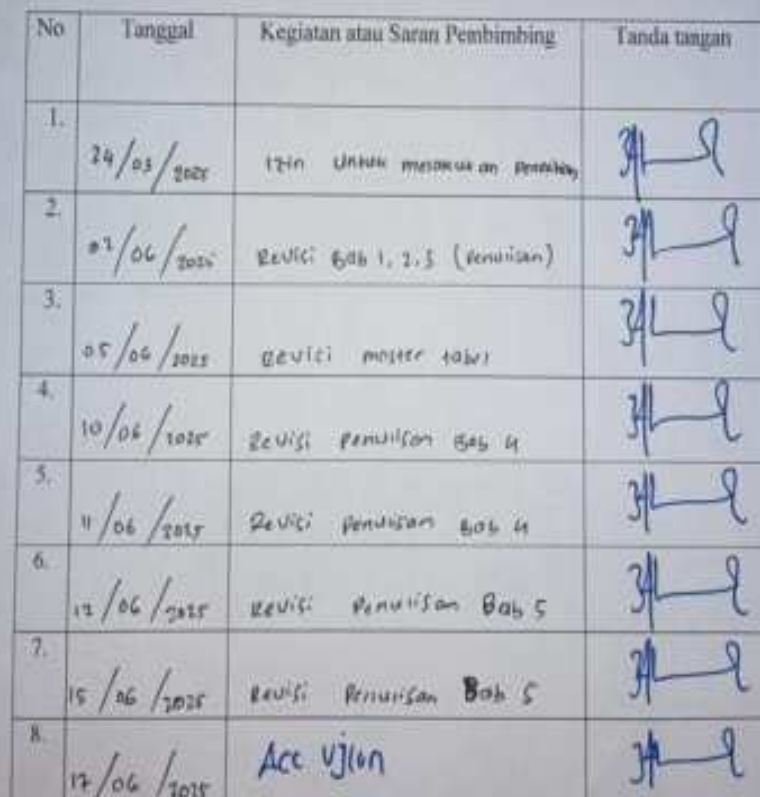 No Tanggal Kegiatan atau Saran Pembimbing Tanda tangan
1. 24/03/2025 Izin untuk melakukan penelitian
2. 02/06/2025 Revisi Bab 1, 2, 3 (penulisan)
3. 05/06/2025 Revisi master tabel
4. 10/06/2025 Revisi penulisan Bab 4
5. 11/06/2025 Revisi penulisan Bab 4
6. 12/06/2025 Revisi penulisan Bab 5
7. 15/06/2025 Revisi Penulisan Bab 5
8. 17/06/2025 Acc Ujian